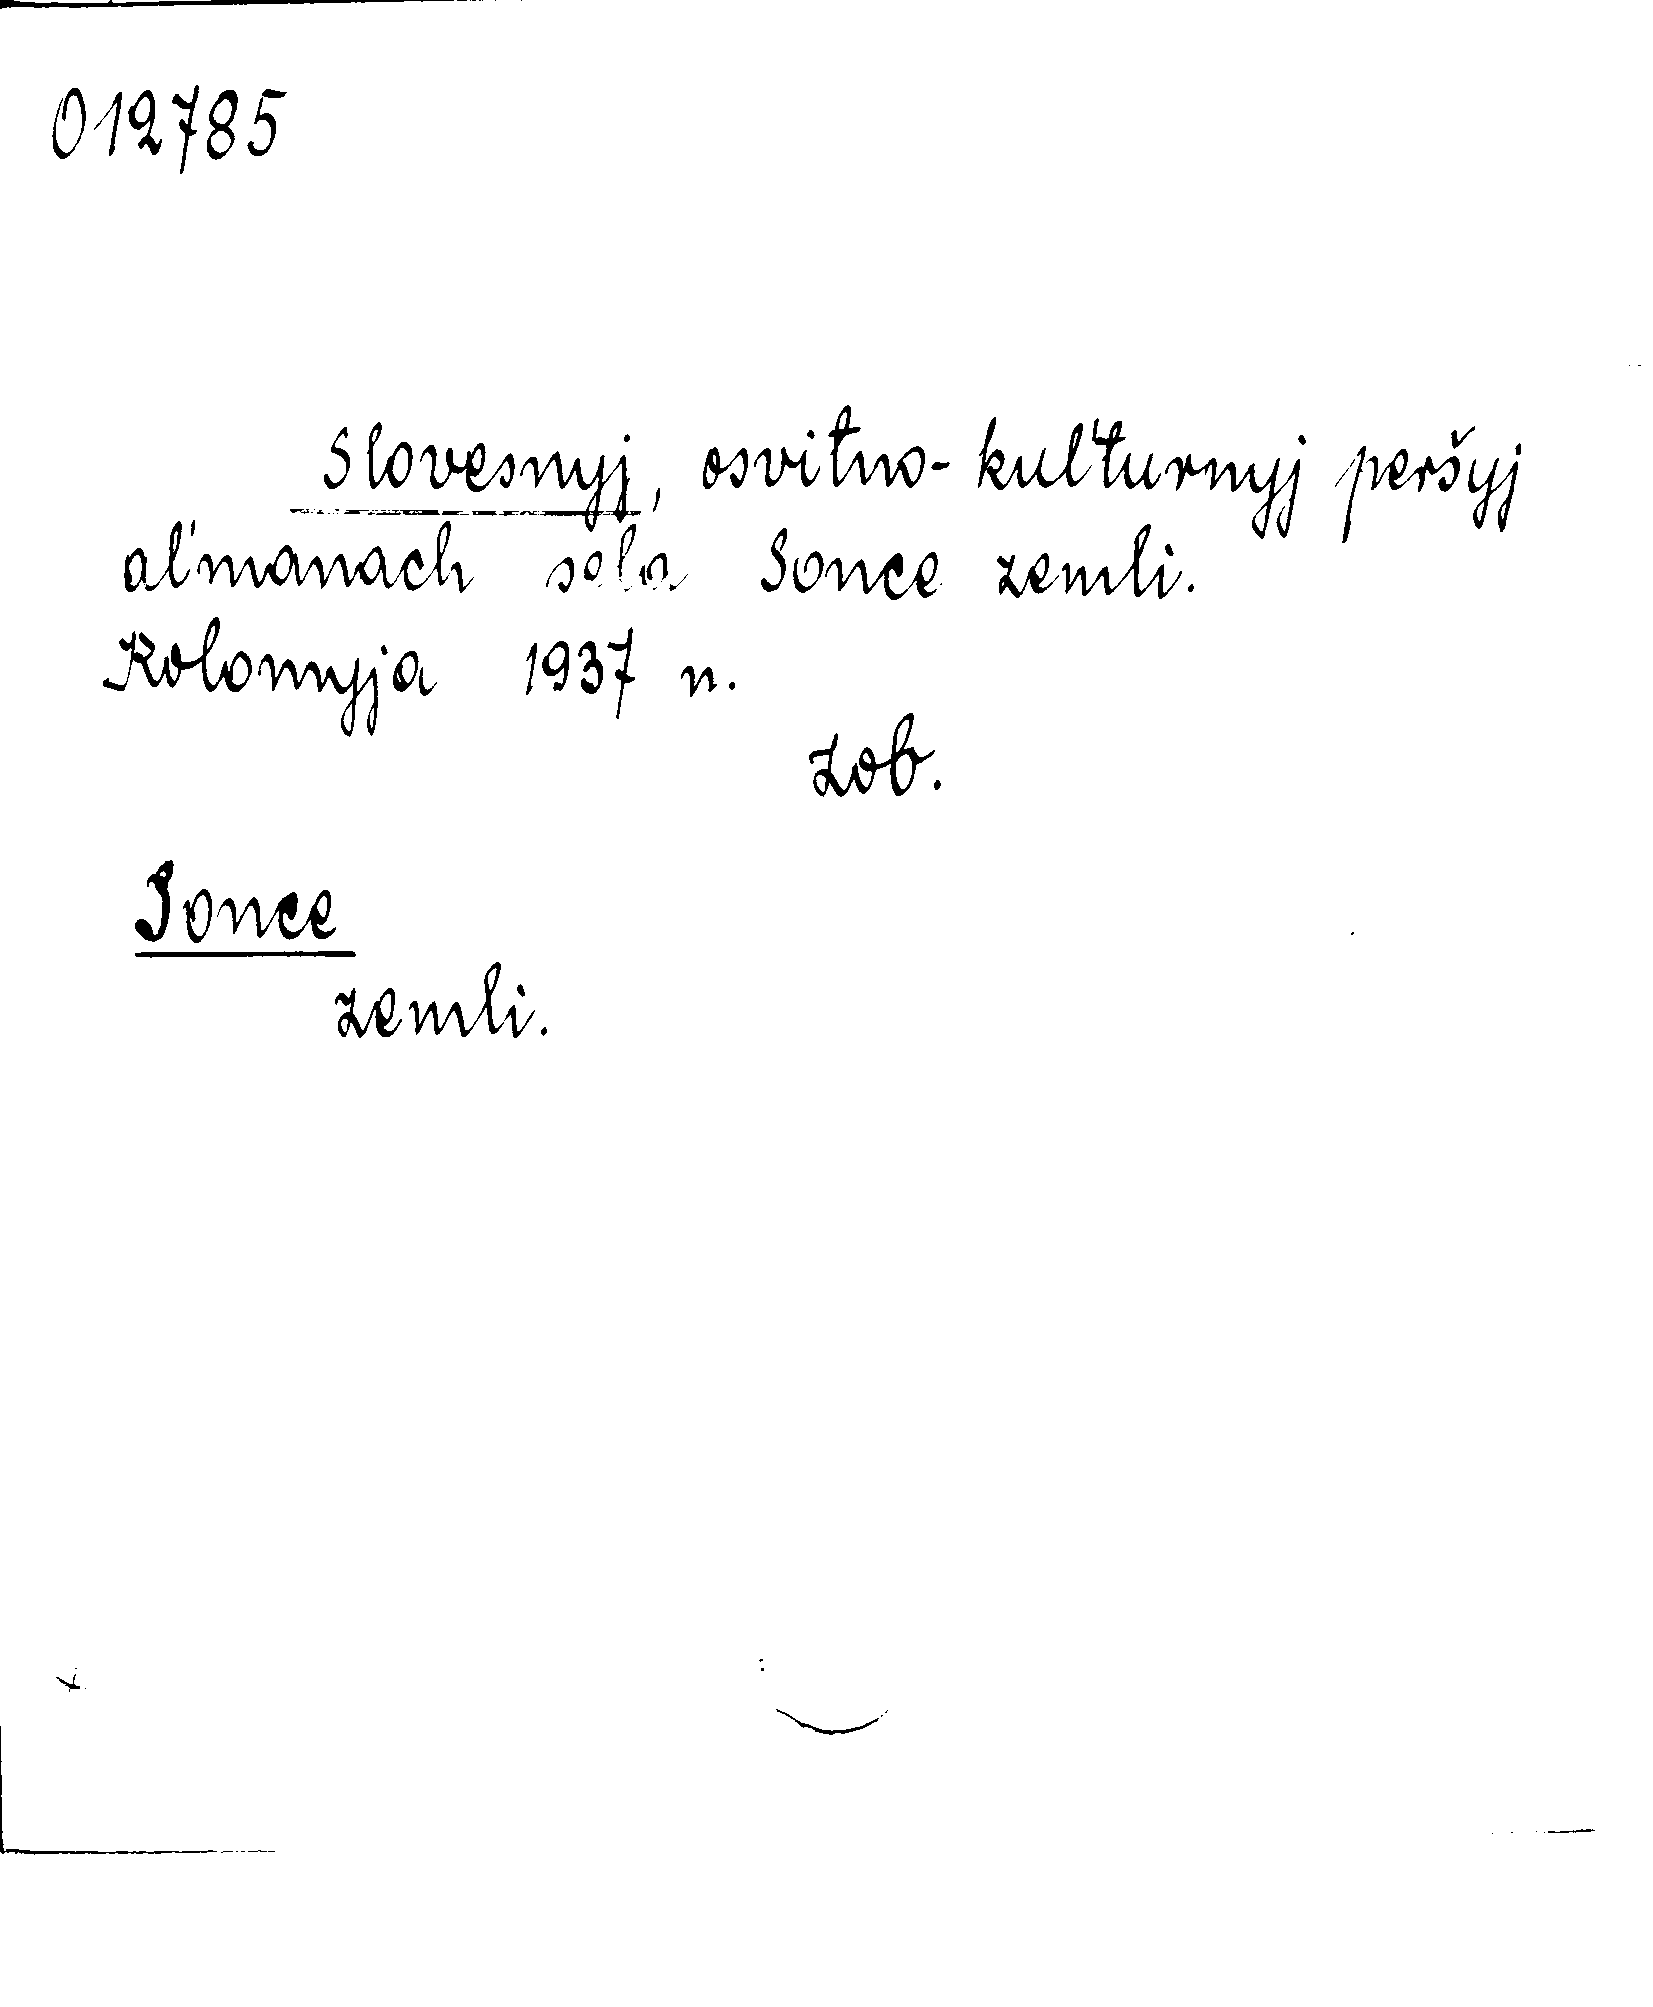 012785
Slovesnyj, osvitno-kul'turnyj peršyj
al'manach sela Sonce zemli.
Kolomyja 1937 n.
zob.
Sonce
zemli.